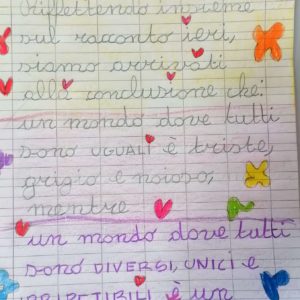 Riflettendo insieme
sul racconto ieri,
siamo arrivati
alla conclusione che:
un mondo dove tutti
sono UGUALI è triste,
grigio e noioso;
mentre
un mondo dove tutti
sono DIVERSI, UNICI e
IRRIPETIBILI è un